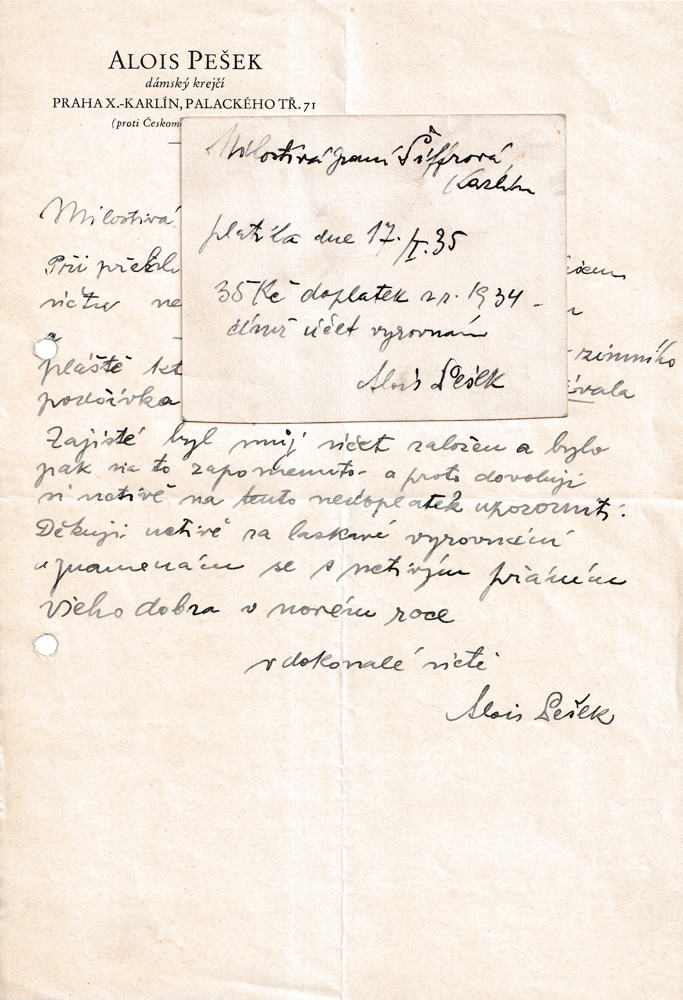 ALOIS PEŠEK
dámský krejčí
PRAHA X.-KARLÍN, PALACKÉHO TŘ. 71
(proti Českom
Milostivá paní Šiffrová
Karlín
platila dne 17./I. 35
35 Kč doplatek z r. 1934 -
čímž účet vyrovnán
Alois Pešek
Milostivá
Při
účtu ne
pláště kt zimního
podšívka
Zajisté byl můj účet založen a bylo
pak na to zapomenuto - a proto dovoluji
si uctivě na tento nedoplatek upozornit.
Děkuji uctivě za laskavé vyrovnání
a znamenám se s uctivým přáním
všeho dobra v novém roce
v dokonalé úctě
Alois Pešek